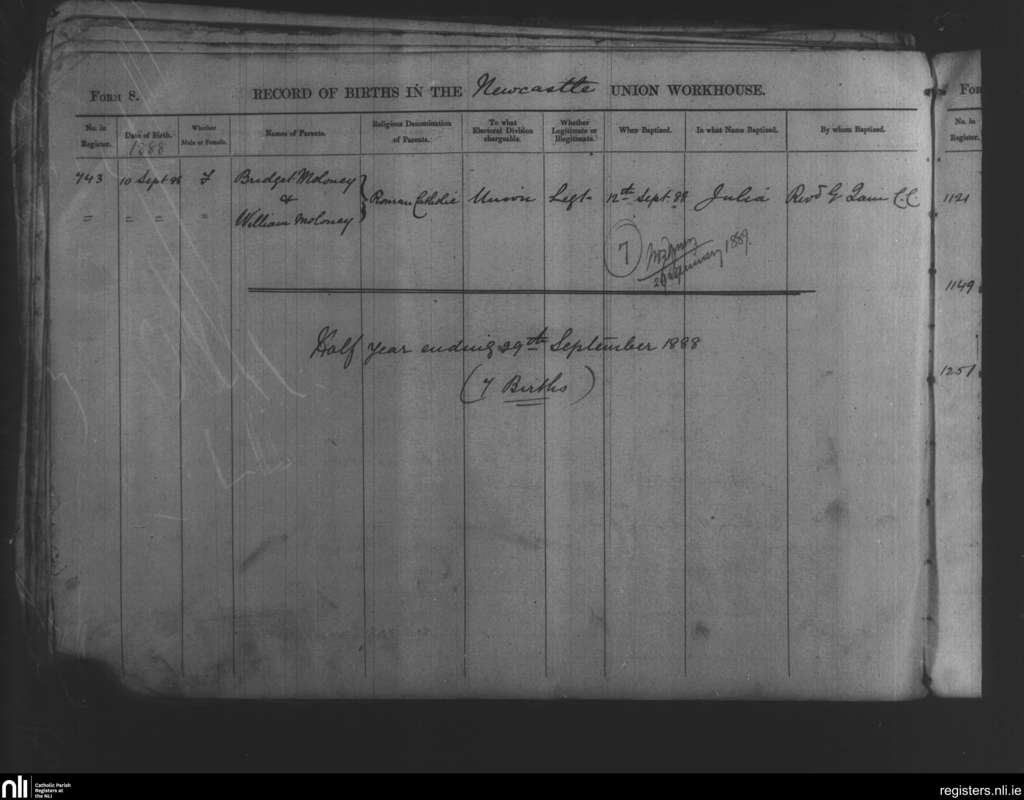 Form 8.
RECORD OF BIRTHS IN THE Newcastle UNION WORKHOUSE.
No. in Register.
Date of Birth. 1888
Whether Male or Female.
Names of Parents.
Religious Denomination of Parents.
To what Electoral Division chargeable.
Whether Legitimate or Illegitimate.
When Baptized.
In what Name Baptized.
By whom Baptized.
743 10 Sept 88 F Bridget Moloney & Roman Catholic Union Legt 12th Sept. 88 Julia Revd G C.C.
" " " " William Moloney
7
1889.
Half year ending 29th September 1888
(7 Births)
For
No. in Register.
1121
1149
1251
nli
Catholic Parish
Registers at
the NLI
registers.nli.ie